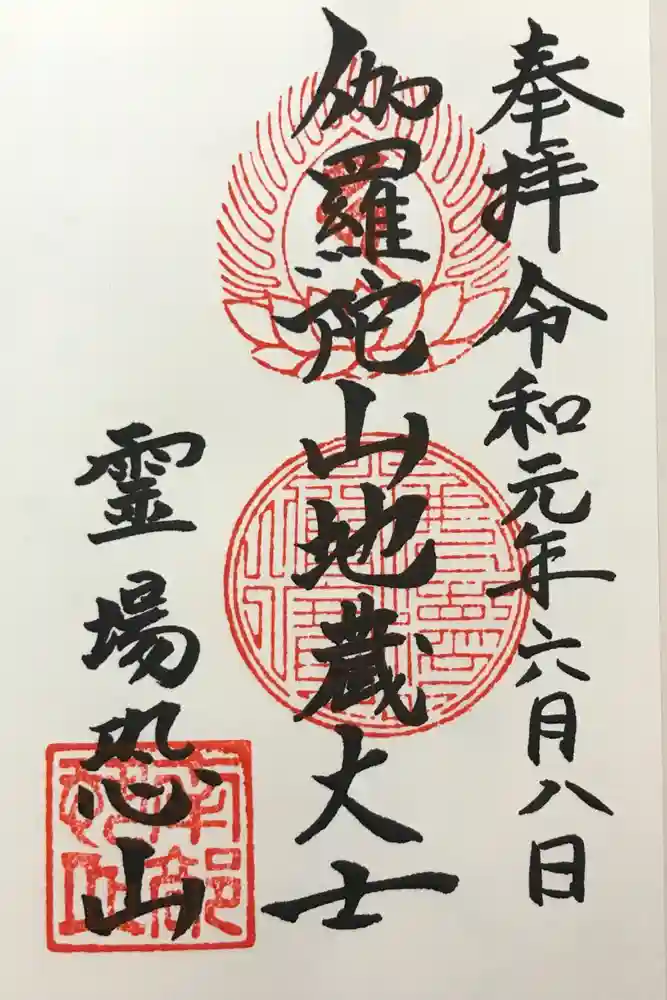 奉拝 令和元年六月八日
伽羅陀山地蔵大士
霊場恐山
南部
恐山